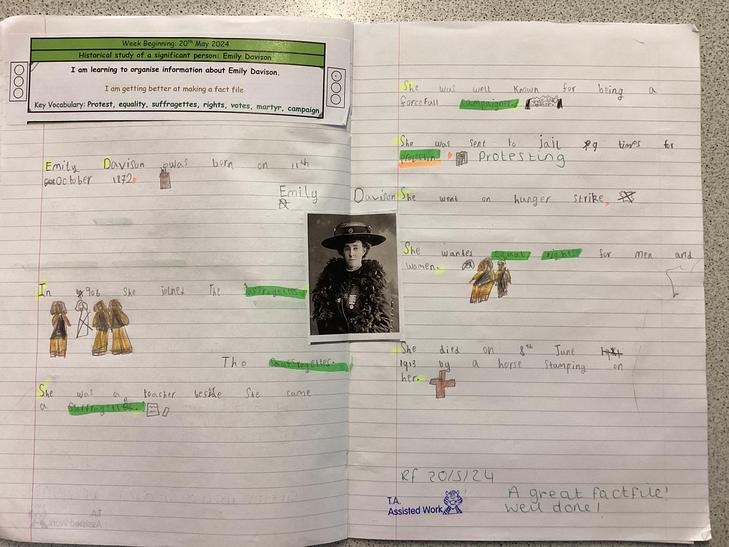 Week Beginning: 20th May 2024
Historical study of a significant person: Emily Davison
I am learning to organise information about Emily Davison.
I am getting better at making a fact file
Key Vocabulary: Protest, equality, suffragettes, rights, votes, martyr, campaign
Emily Davison was born on 11th
October 1872.
Emily Davison
In 1906 she joined The
The
She was a teacher She came
a
She was well known for being a
forcefull
She was sent to jail 9 times for
Protesting
She went on hunger strike.
She wantes equal rights for men and
women.
She died on 8th June
1913 by a horse stamping on
her.
RF 20/5/24
T.A.
Assisted Work
A great factfile!
Well done!